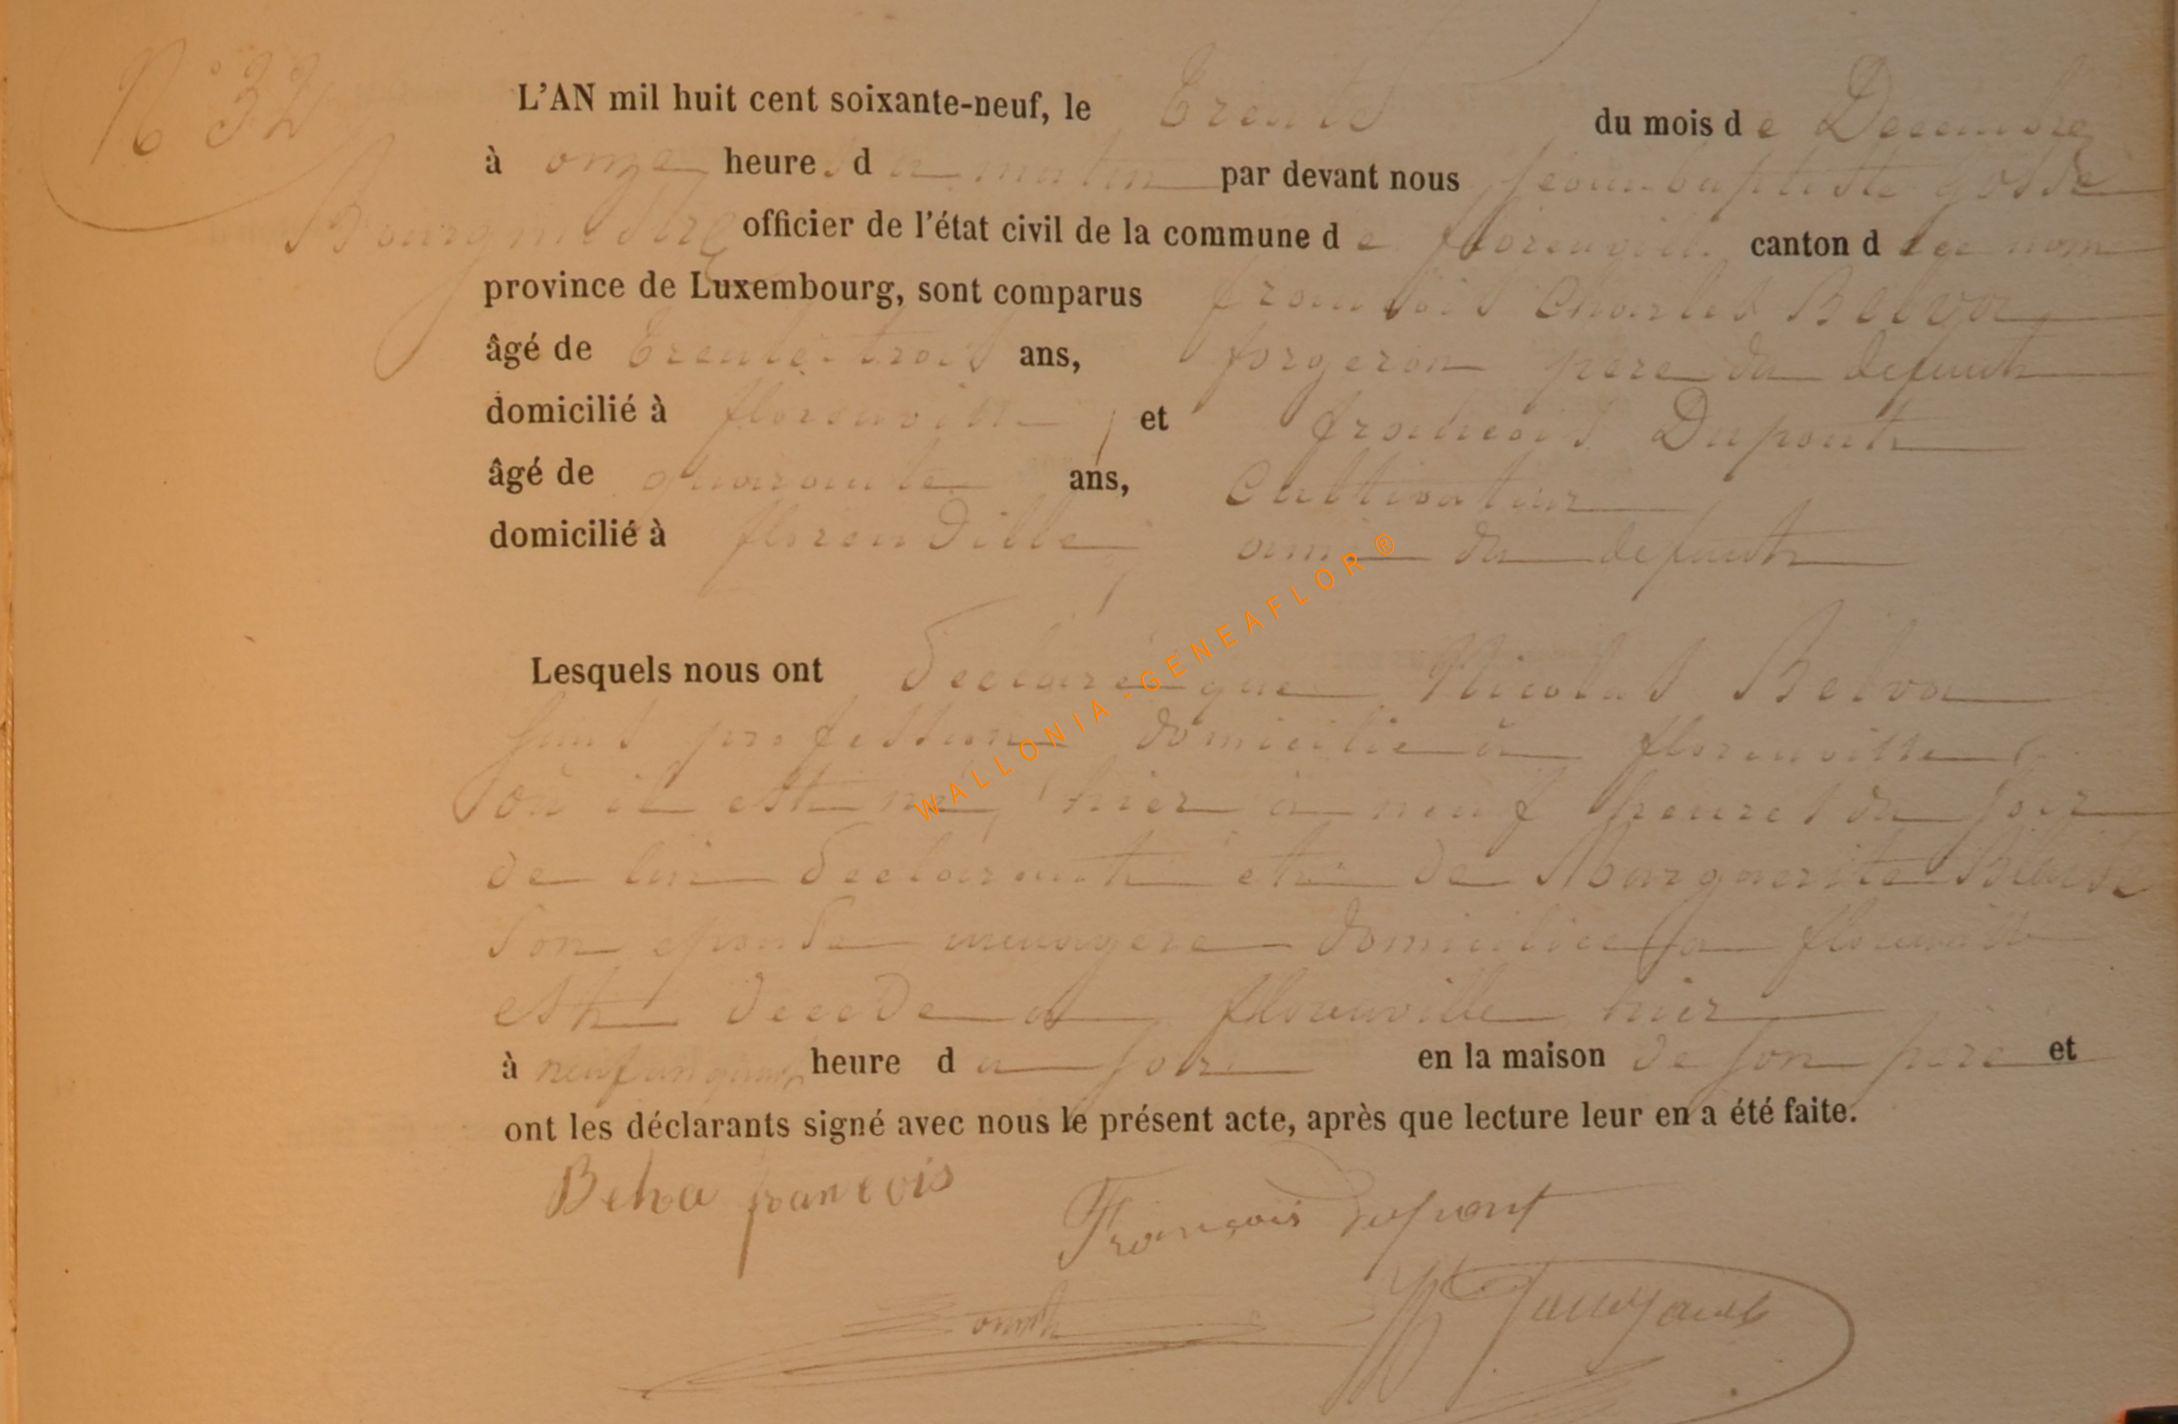 N° 32
L'AN mil huit cent soixante-neuf, le trente du mois de Decembre
à onze heures du matin par devant nous jean baptiste
Bourgmestre officier de l'état civil de la commune de florenville canton de ce nom
province de Luxembourg, sont comparus francois Charles Belva
âgé de trente-trois ans, forgeron père du defunt
domicilié à florenville, et francois Dupont
âgé de quarante ans, Cultivateur
domicilié à florenville, ami du defunt
Lesquels nous ont declaré que Nicolas Belva
sans profession domicilié à florenville
où il est né, hier à neuf heures du soir
de lui declarant et de Marguerite
son epouse menagere domiciliee a florenville
est decede a florenville hier
à neuf un quart heure du soir en la maison de son père et
ont les déclarants signé avec nous le présent acte, après que lecture leur en a été faite.
Belva francois
François dupont
WALLONIA - GENEAFLOR ®